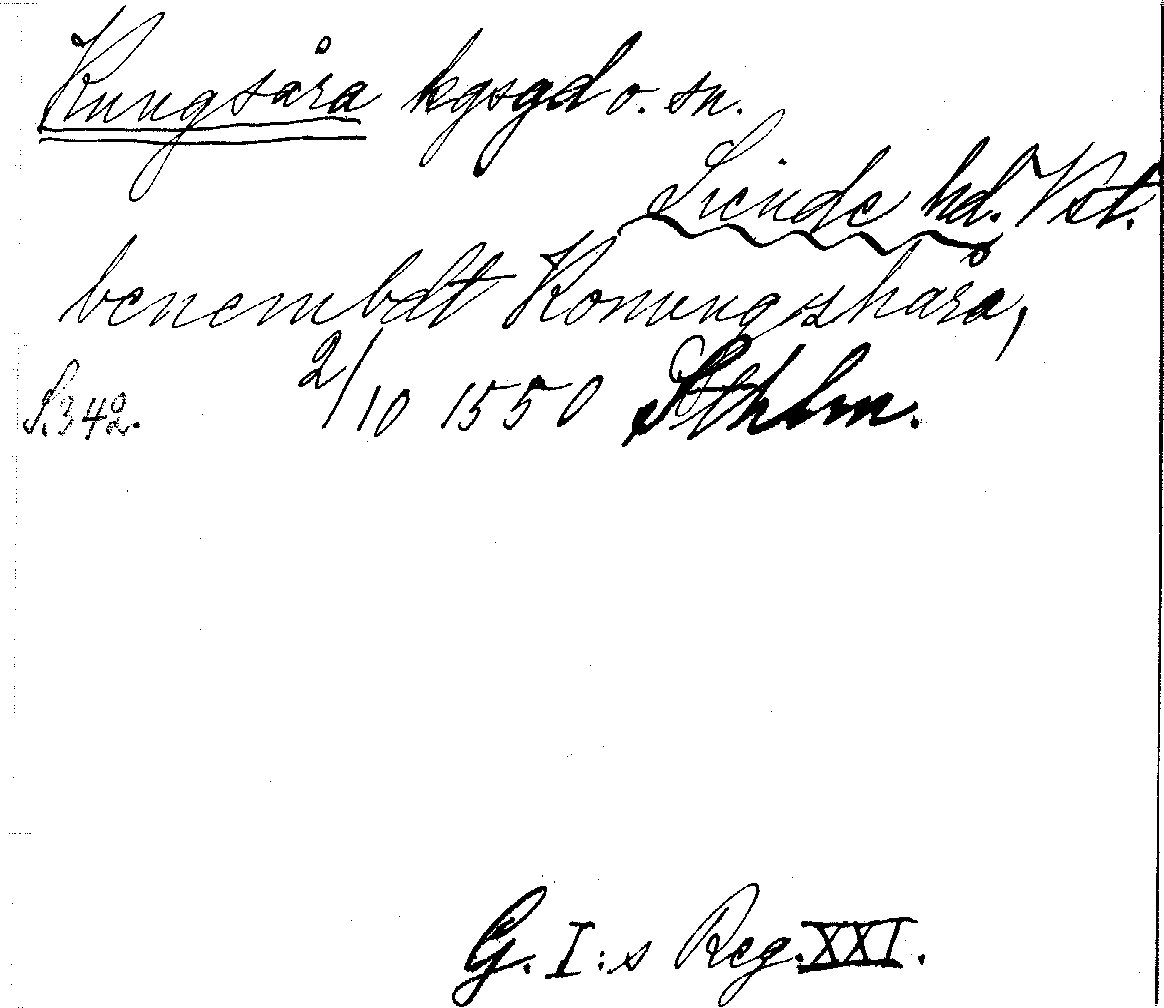 Kungsåra kgsgd o. sn.
Siende hd. Vst.
benembdt Konungzhåra,
S. 342. 2/10 1550 Sthlm.
G. I:s Reg. XXI.